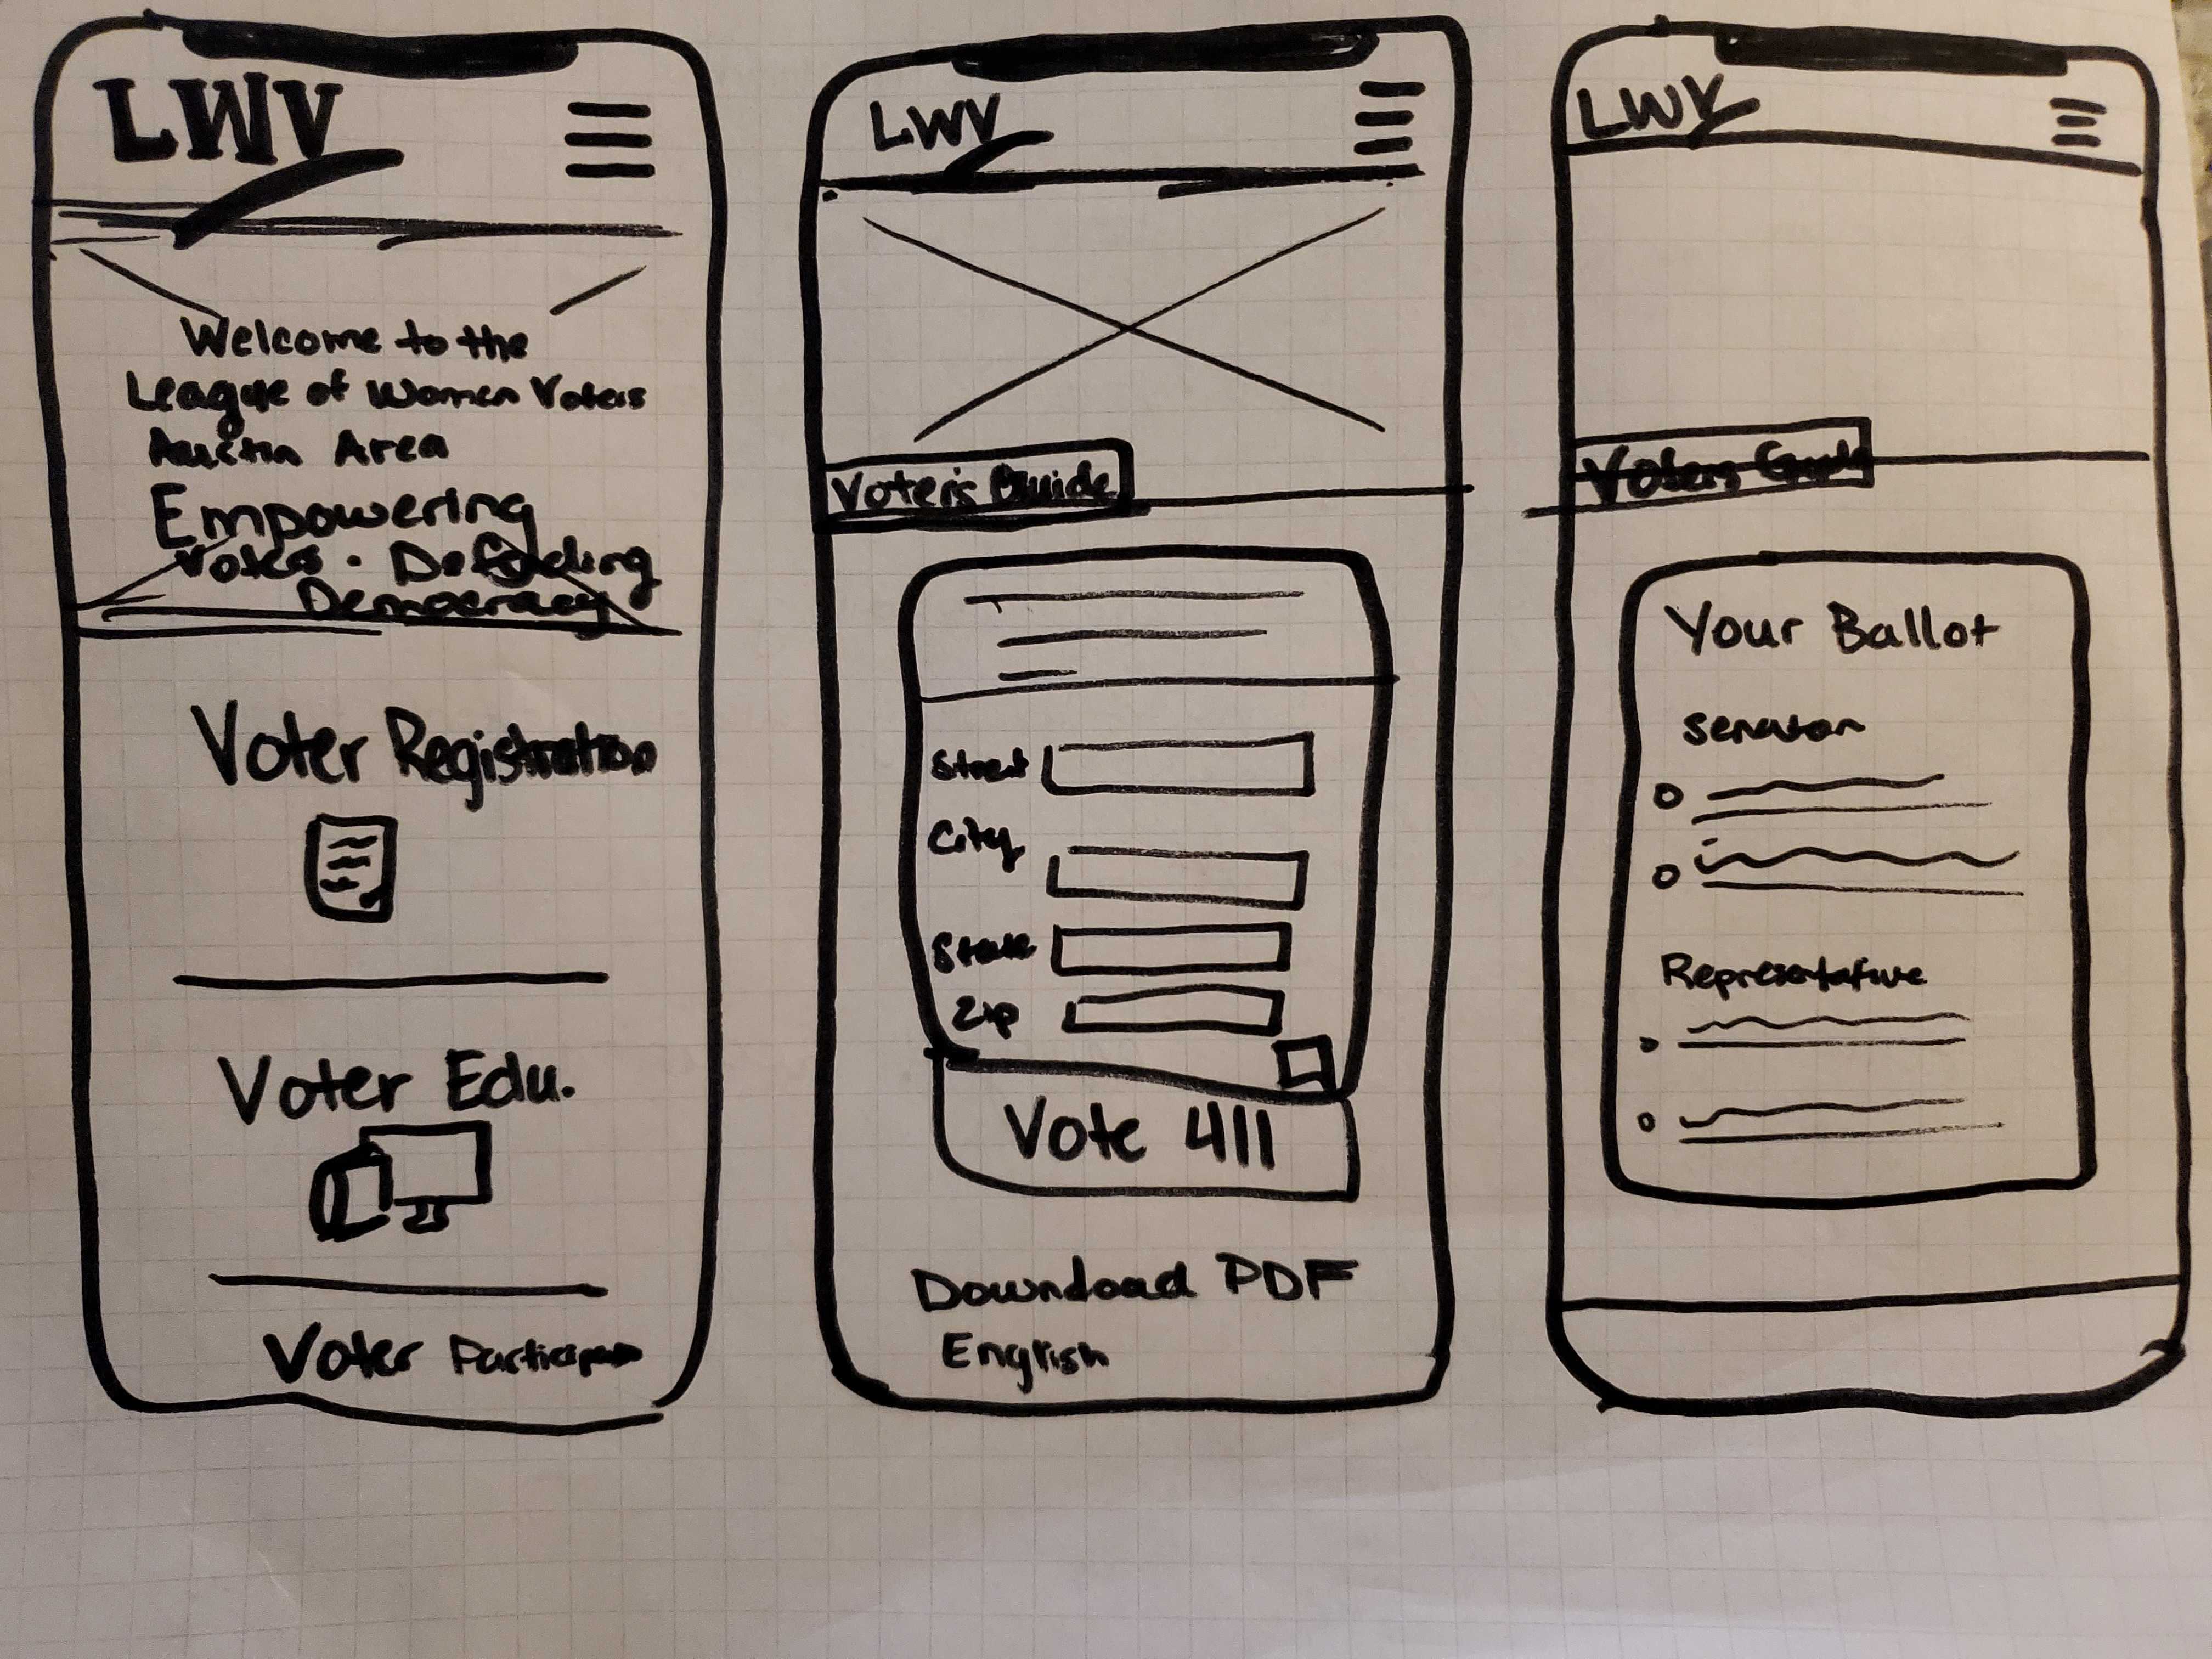 LWV
Welcome to the
League of Women Voters
Austin Area
Empowering
Voters · Defending
Democracy
Voter Registration
Voter Edu.
Voter
LWV
Voters Guide
Street
City
State
Zip
Vote 411
Download PDF
English
LWV
Voters Guide
Your Ballot
Senator
Representative